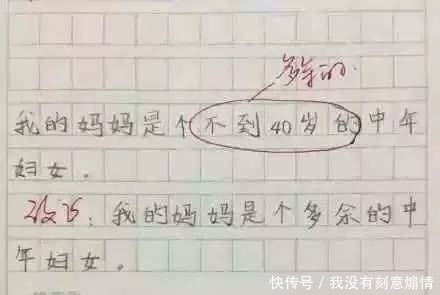 多余的.
我的妈妈是个不到40岁的中年
妇女。
改正：我的妈妈是个多余的中
年妇女。
快传号/我没有刻意煽情